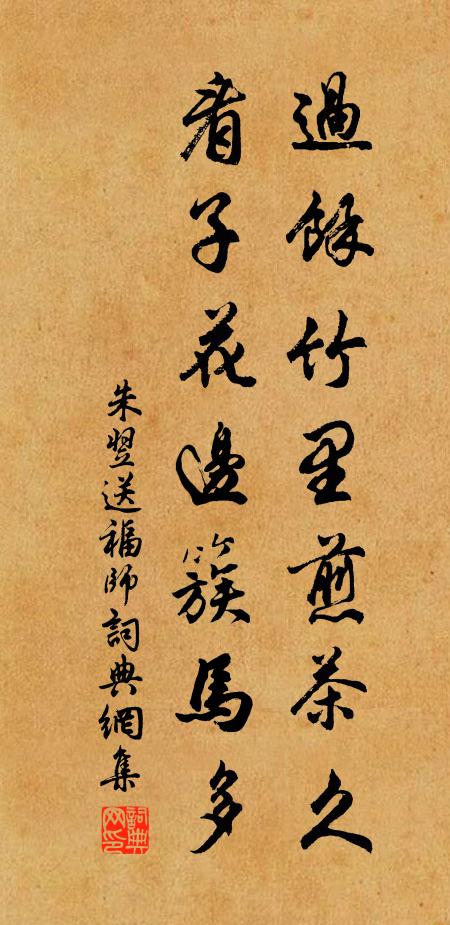 過餘竹里煎茶久
看子花邊簇馬多
朱翌送福師詞典網集
詞典网印